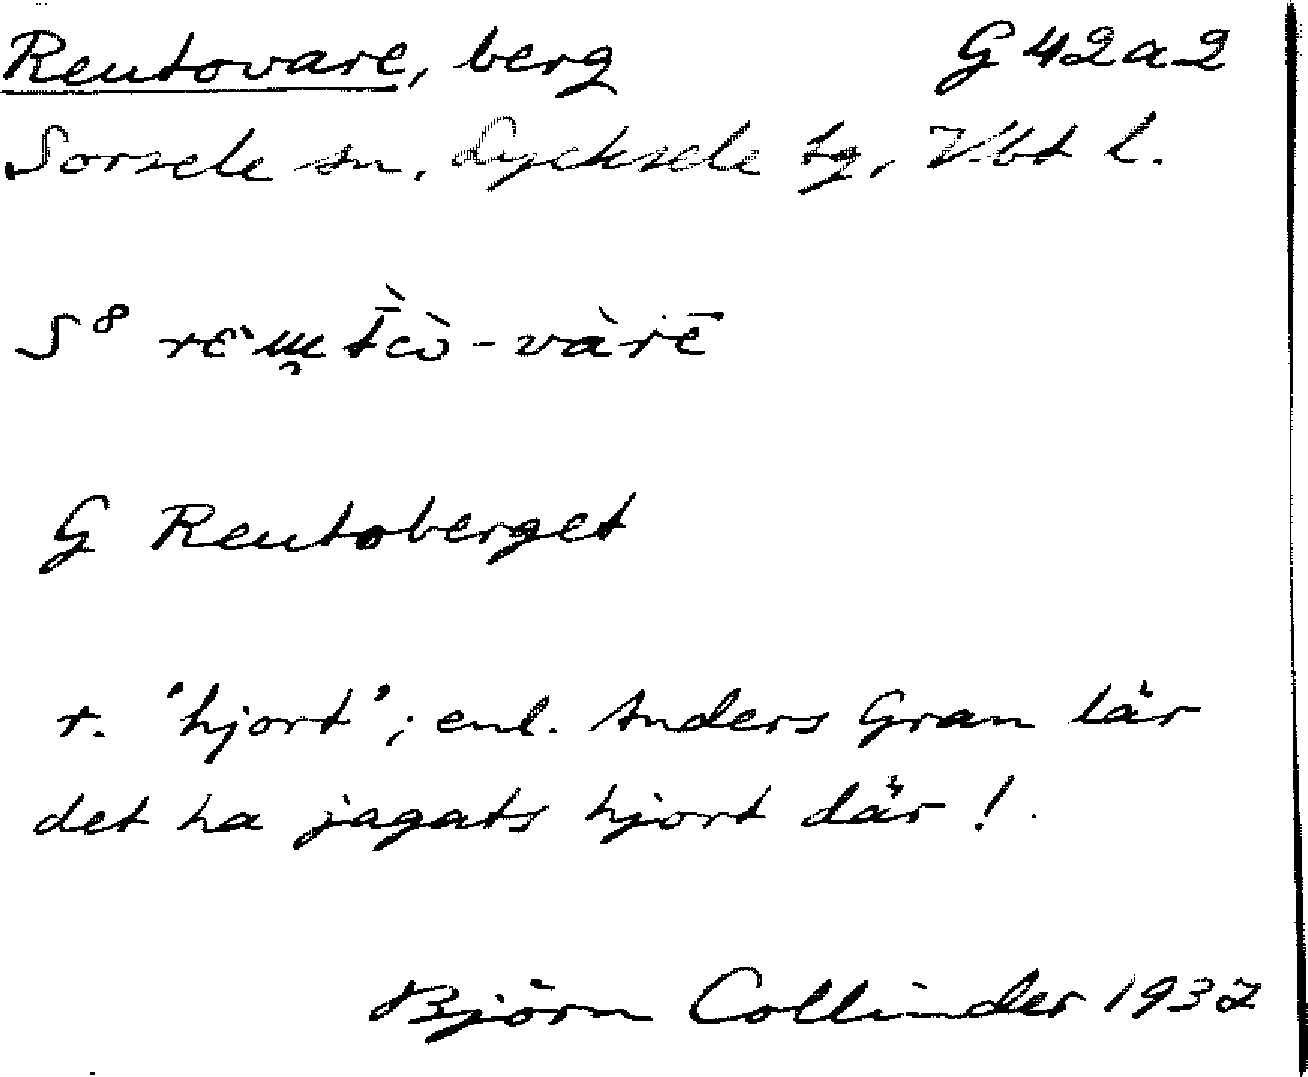 Reutovare, berg G42a2
Sorsele sn. Lycksele tg, Vbt l.
S⁸
G Reutoberget
r. "hjort"; enl. Anders Gran lär
det ha jagats hjort där!
Björn Collinder 1932